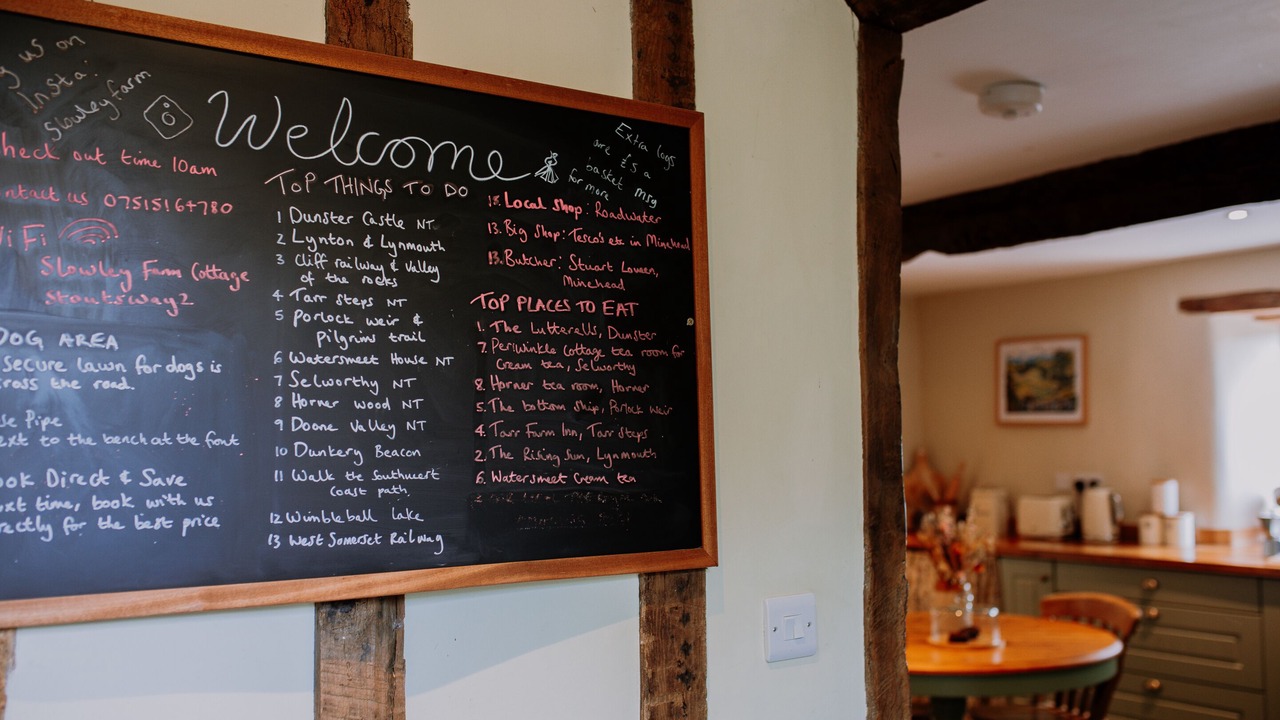 us on
Insta:
Slowley farm
Welcome
Extra logs
are £'s a
basket msg
for more
heck out time 10am
ntact us
WiFi
Slowley Farm Cottage
stoutsway2
DOG AREA
secure lawn for dogs is
ross the road.
se Pipe
ext to the bench at the font
ook Direct & Save
ext time, book with us
rectly for the best price
TOP THINGS TO DO
1 Dunster Castle NT
2 Lynton & Lynmouth
3 Cliff railway & Valley
of the rocks
4 Tarr steps NT
5 Porlock weir &
Pilgrims trail
6 Watersmeet House NT
7 Selworthy NT
8 Horner wood NT
9 Doone Valley NT
10 Dunkery Beacon
11 Walk the Southwest
Coast path.
12 Wimbleball Lake
13 West Somerset Railway
Local Shop: Roadwater
13. Big Shop: Tesco's etc in Minehead
13. Butcher: Stuart
Minehead
TOP PLACES TO EAT
1. The Luttrells, Dunster
7. Periwinkle Cottage tea room for
Cream tea, Selworthy
8. Horner tea room, Horner
5. The bottom Ship, Porlock Weir
4. Tarr Farm Inn, Tarr Steps
2. The Rising Sun, Lynmouth
6. Watersmeet Cream tea